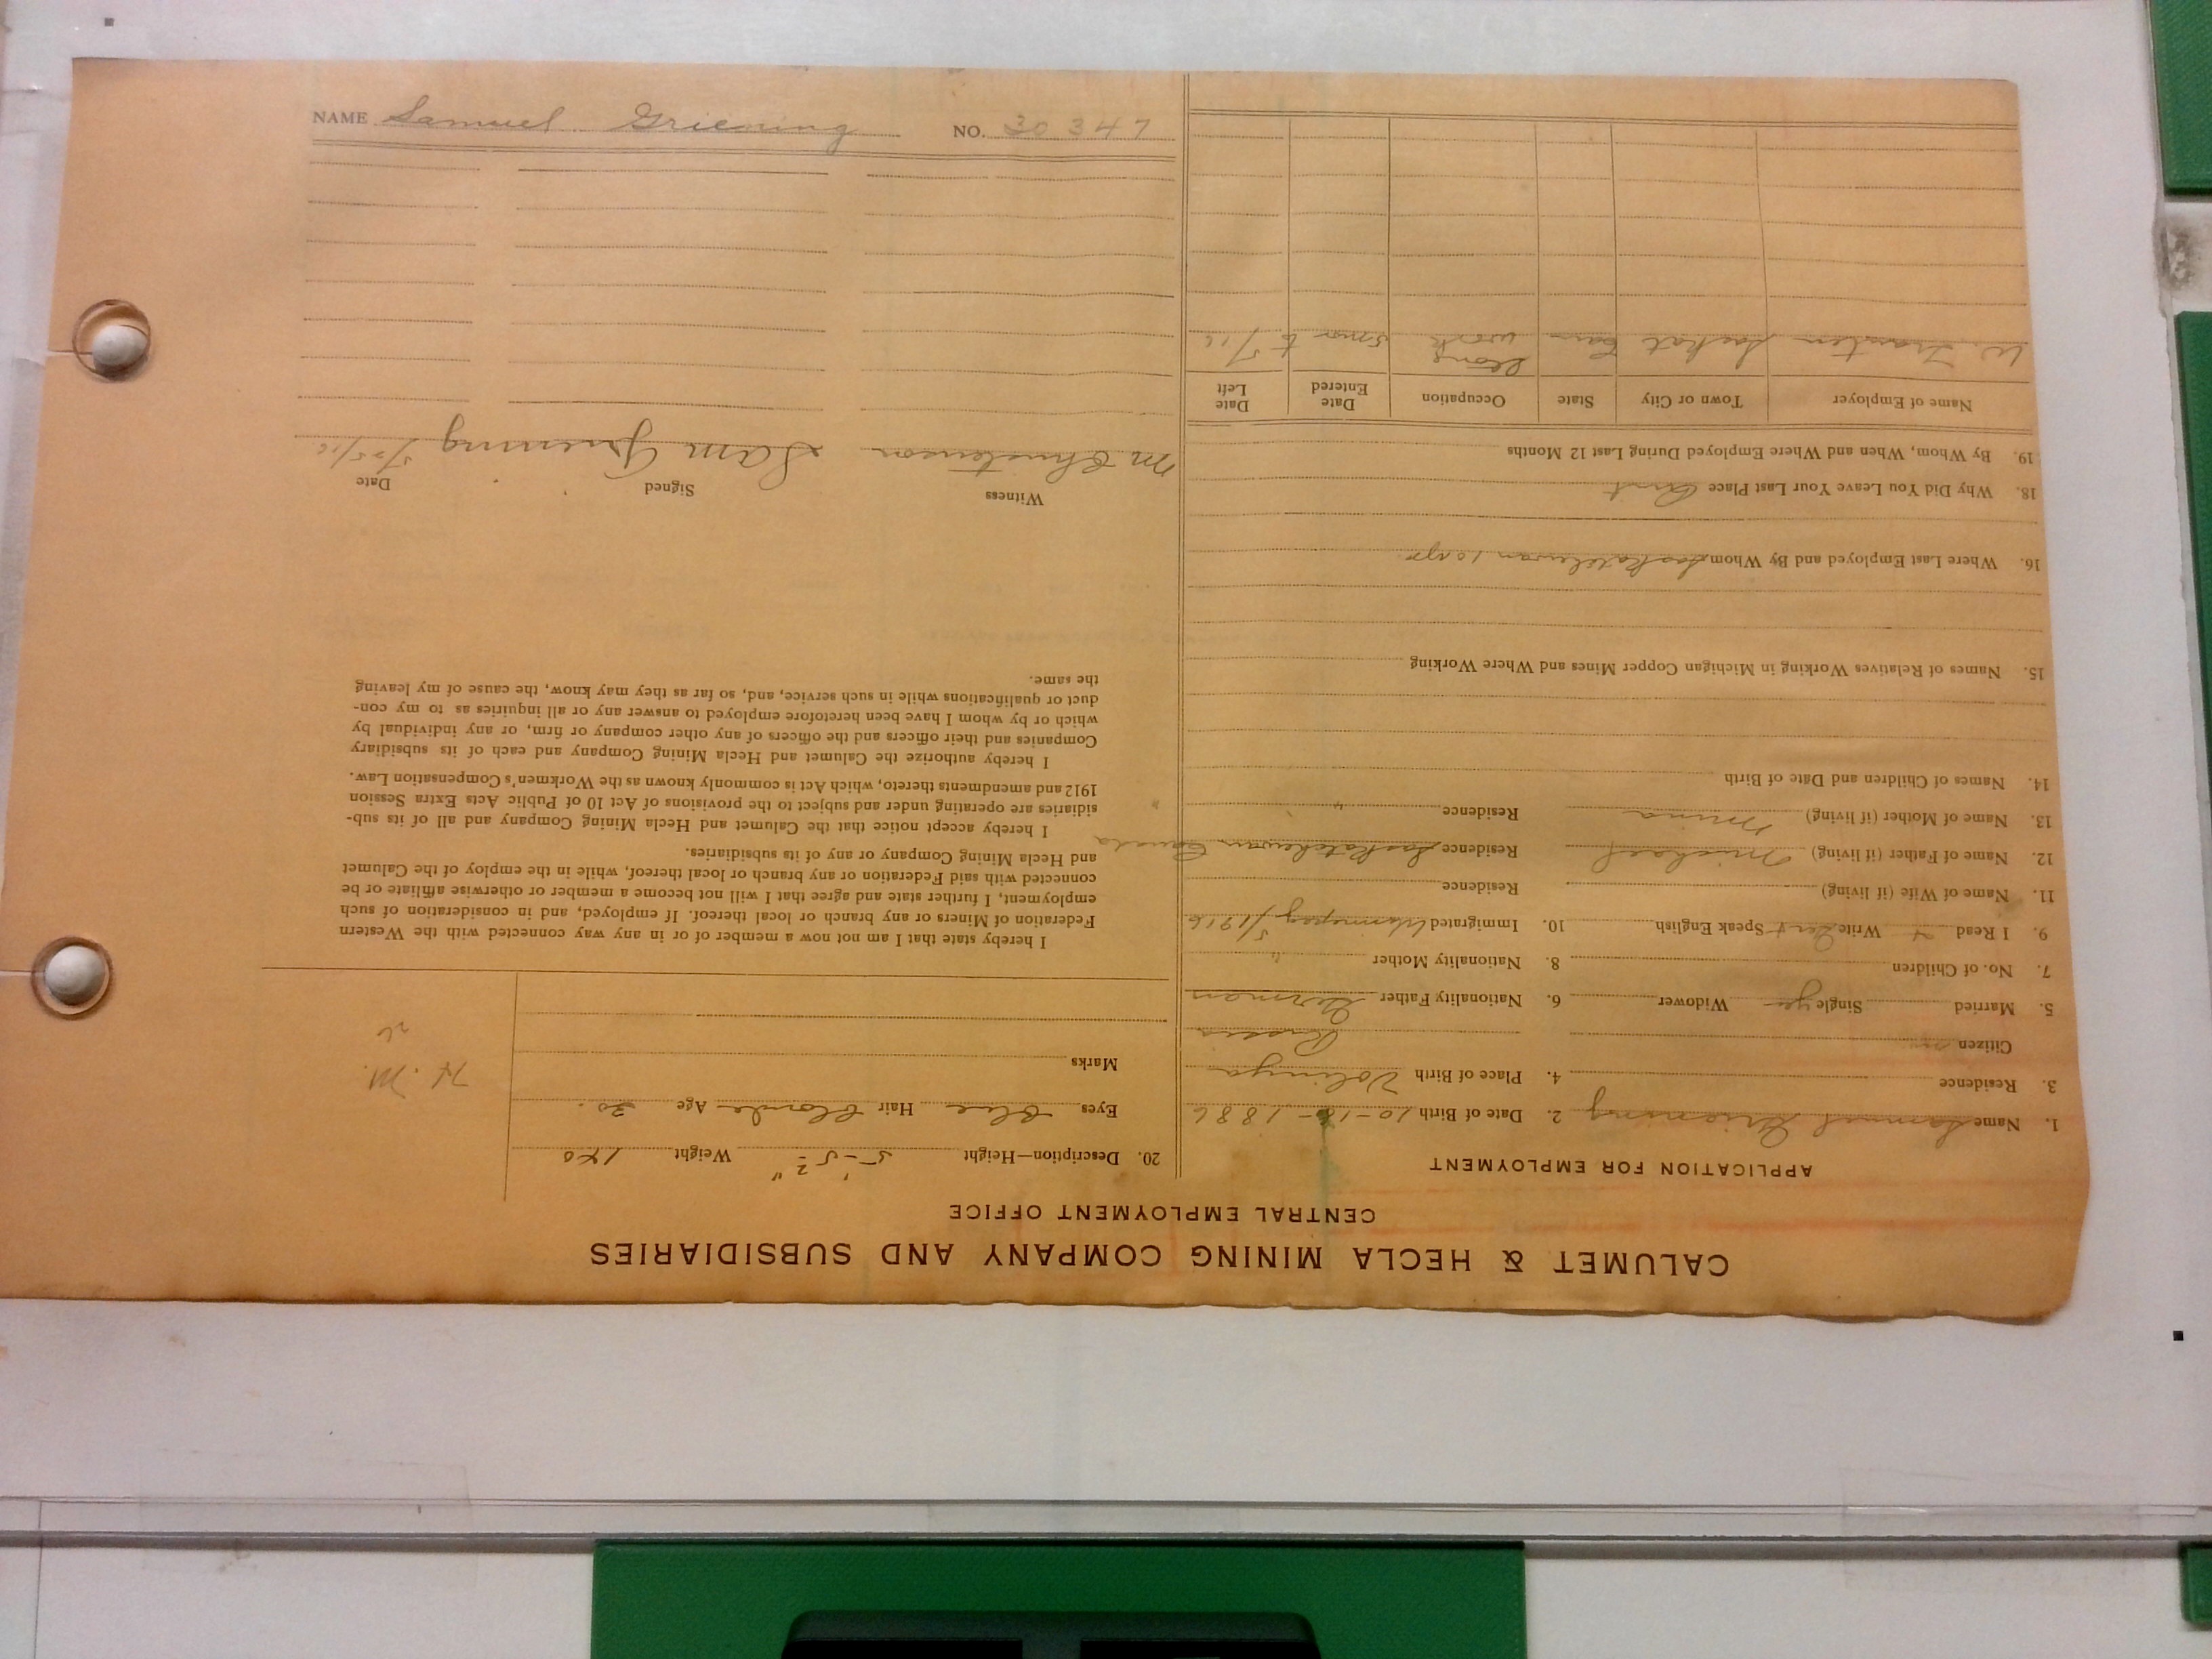 NAME Samuel Griening NO. 30347
CALUMET & HECLA MINING COMPANY AND SUBSIDIARIES
CENTRAL EMPLOYMENT OFFICE
APPLICATION FOR EMPLOYMENT
1. Name Samuel Griening 2. Date of Birth 10-18-1886
3. Residence 4. Place of Birth Volinya
Citizen no Russia
5. Married Single yes Widower 6. Nationality Father German
7. No. of Children 8. Nationality Mother "
9. I Read Write Speak English 10. Immigrated 5/1916
11. Name of Wife (if living) Residence
12. Name of Father (if living) Michael Residence Saskatchewan Canada
13. Name of Mother (if living) Mina Residence "
14. Names of Children and Date of Birth
15. Names of Relatives Working in Michigan Copper Mines and Where Working
16. Where Last Employed and By Whom Saskatchewan 10 yr
18. Why Did You Leave Your Last Place
19. By Whom, When and Where Employed During Last 12 Months
Name of Employer Town or City State Occupation Date Entered Date Left
W. Saskat Can work 5/16
20. Description—Height 5'-5½" Weight 140
Eyes Blue Hair Blonde Age 30
Marks
H. M.
26
I hereby state that I am not now a member of or in any way connected with the Western
Federation of Miners or any branch or local thereof. If employed, and in consideration of such
employment, I further state and agree that I will not become a member or otherwise affiliate or be
connected with said Federation or any branch or local thereof, while in the employ of the Calumet
and Hecla Mining Company or any of its subsidiaries.
I hereby accept notice that the Calumet and Hecla Mining Company and all of its sub-
sidiaries are operating under and subject to the provisions of Act 10 of Public Acts Extra Session
1912 and amendments thereto, which Act is commonly known as the Workmen's Compensation Law.
I hereby authorize the Calumet and Hecla Mining Company and each of its subsidiary
Companies and their officers and the officers of any other company or firm, or any individual by
which or by whom I have been heretofore employed to answer any or all inquiries as to my con-
duct or qualifications while in such service, and, so far as they may know, the cause of my leaving
the same.
Witness Signed Date
M Christenson Sam Griening 5/25/16